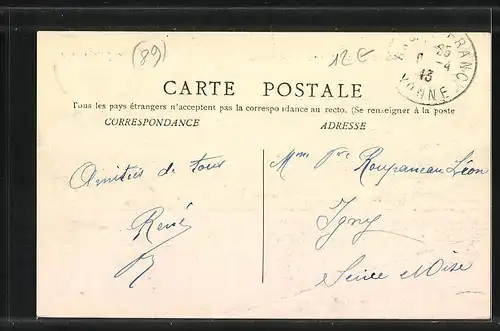 (89)
12 E
FRANC
13
YONNE
CARTE POSTALE
Tous les pays étrangers n'acceptent pas la correspondance au recto. (Se renseigner à la poste
CORRESPONDANCE
ADRESSE
Amitiés de tous
René
Mme Roupaneau Léon
Igny
Seine et Oise